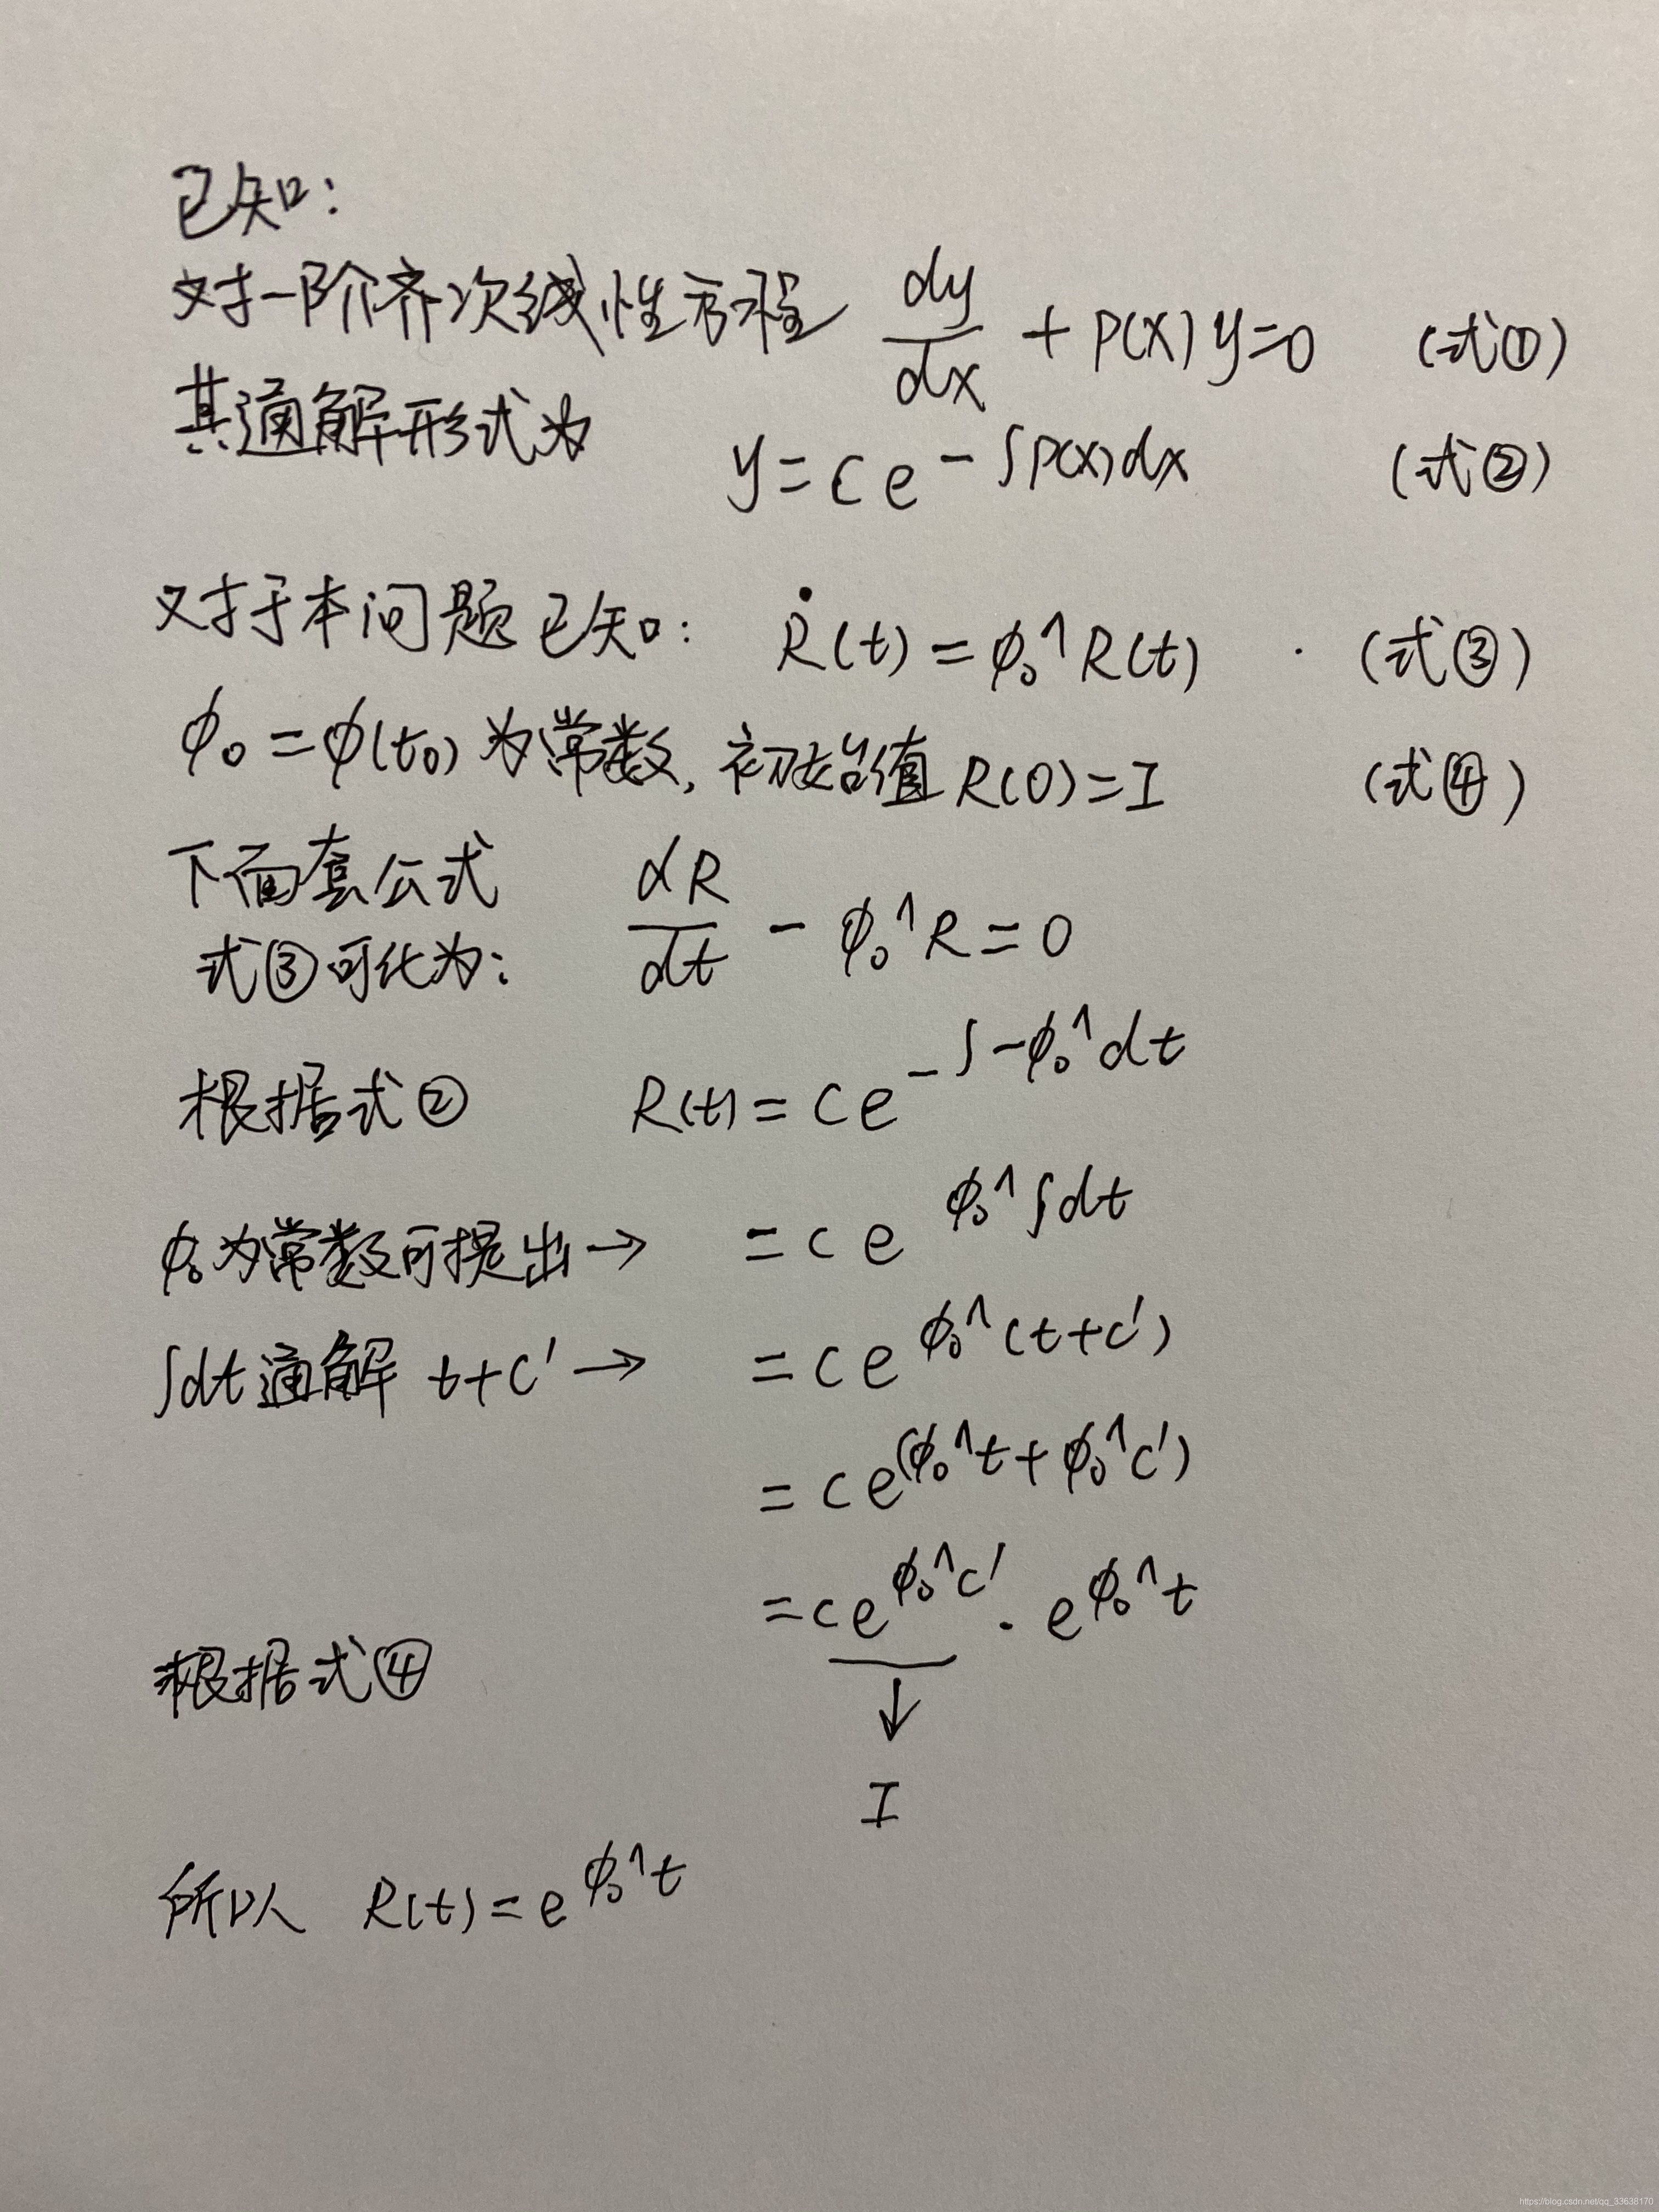 已知：
对一阶齐次线性方程 dy/dx + P(x)y=0 (式①)
其通解形式为
y=ce^{-∫P(x)dx} (式②)
对于本问题已知： Ṙ(t)=φ₀^R(t) . (式③)
φ₀=φ(t₀)为常数，初始值R(0)=I (式④)
下面套公式
式③可化为： dR/dt - φ₀^R=0
根据式② R(t)=ce^{-∫-φ₀^dt}
φ₀为常数可提出→ =ce^{φ₀^∫dt}
∫dt通解 t+c'→ =ce^{φ₀^(t+c')}
=ce^{(φ₀^t+φ₀^c')}
=ce^{φ₀^c'}·e^{φ₀^t}
根据式④
↓
I
所以 R(t)=e^{φ₀^t}
https://blog.csdn.net/qq_33638170